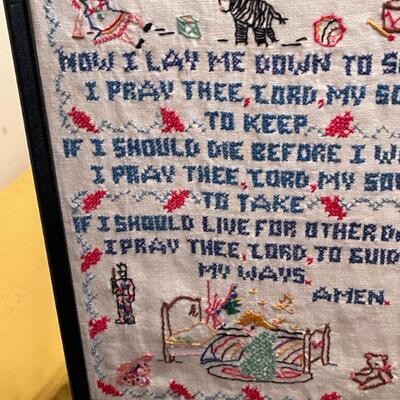 NOW I LAY ME DOWN TO S
I PRAY THEE, LORD, MY SO
TO KEEP
IF I SHOULD DIE BEFORE I W
I PRAY THEE, LORD, MY SOU
TO TAKE
IF I SHOULD LIVE FOR OTHER DA
I PRAY THEE, LORD, TO GUID
MY WAYS.
AMEN.